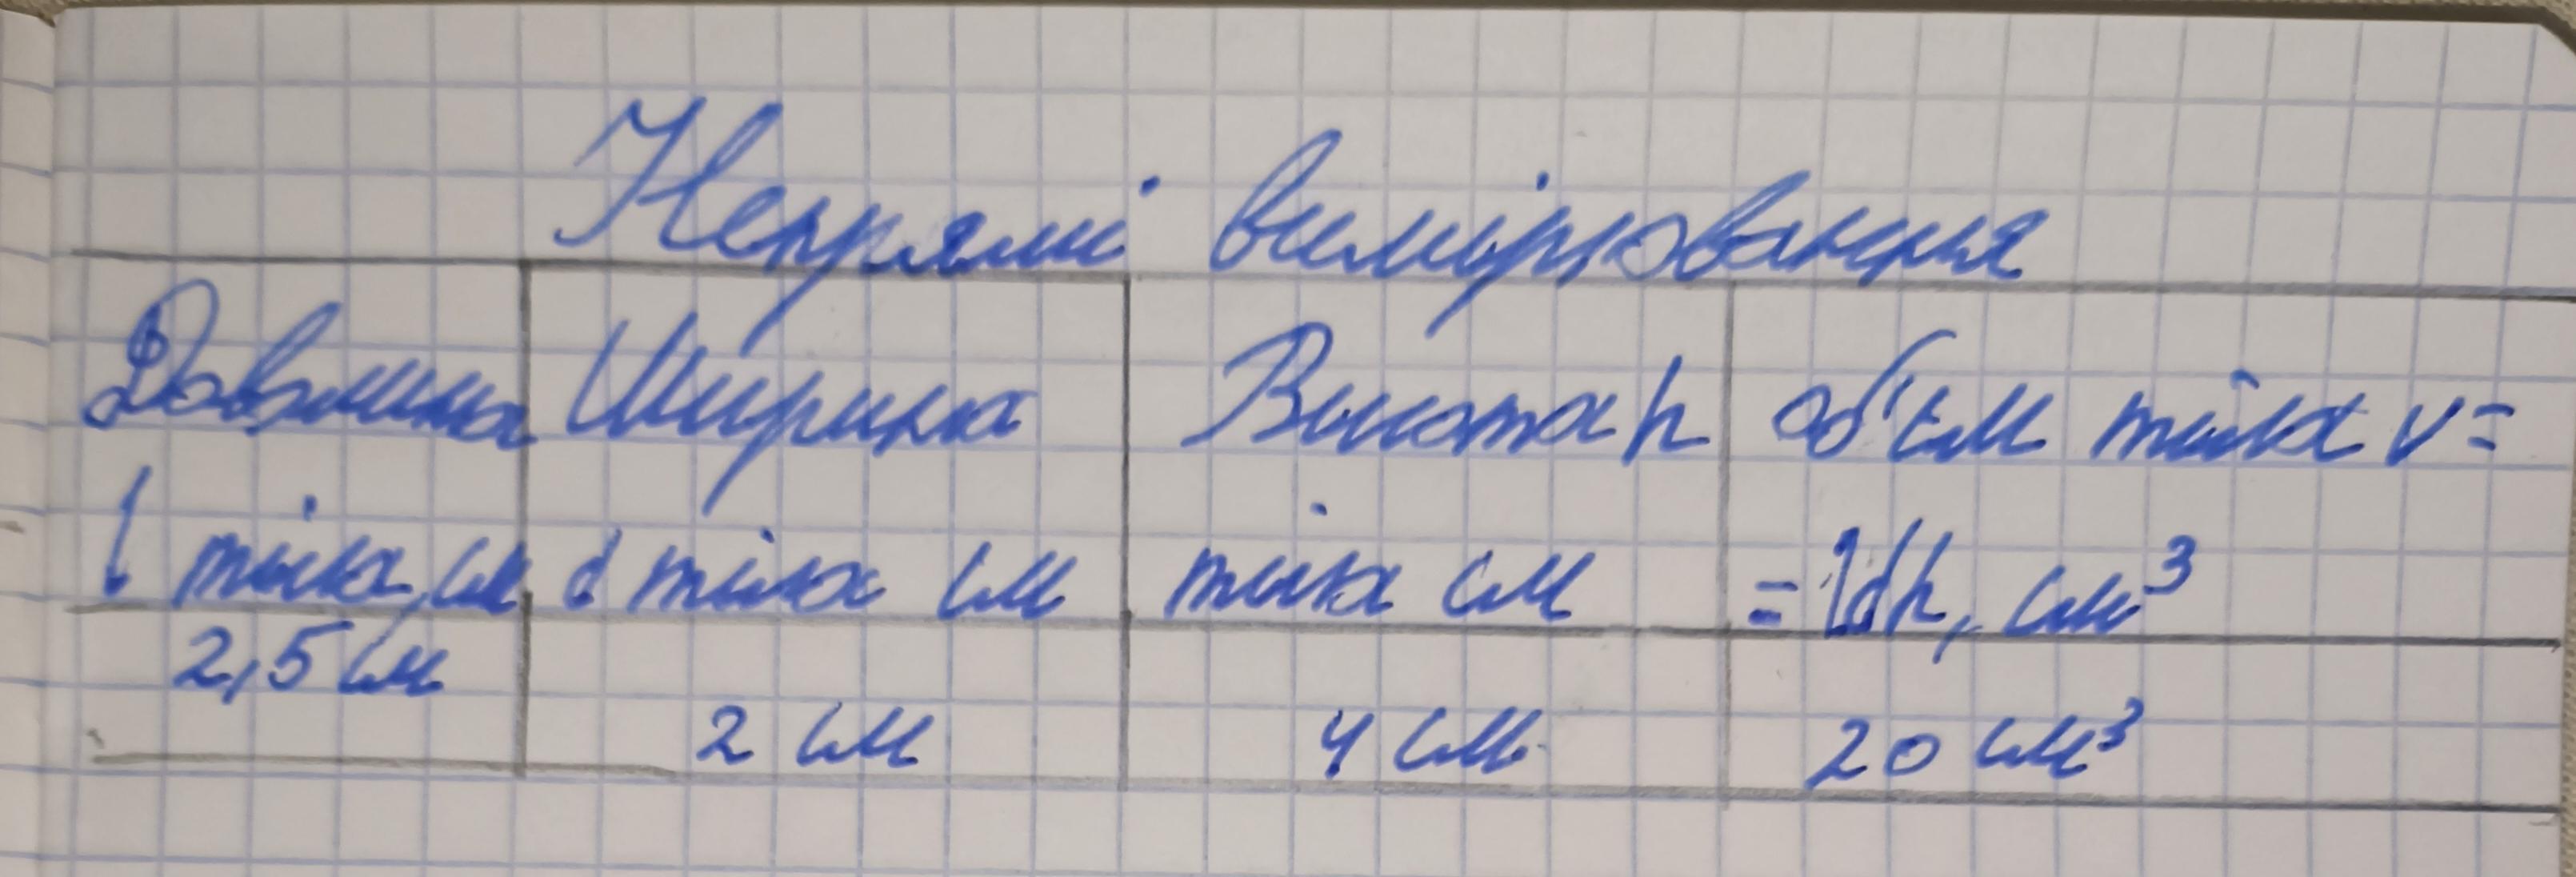 Непрямі вимірювання
Довжина Ширина Висота h об'єм тіла V=
l тіла, см d тіла см тіла см = ldh, см³
2,5 см
2 см 4 см 20 см³